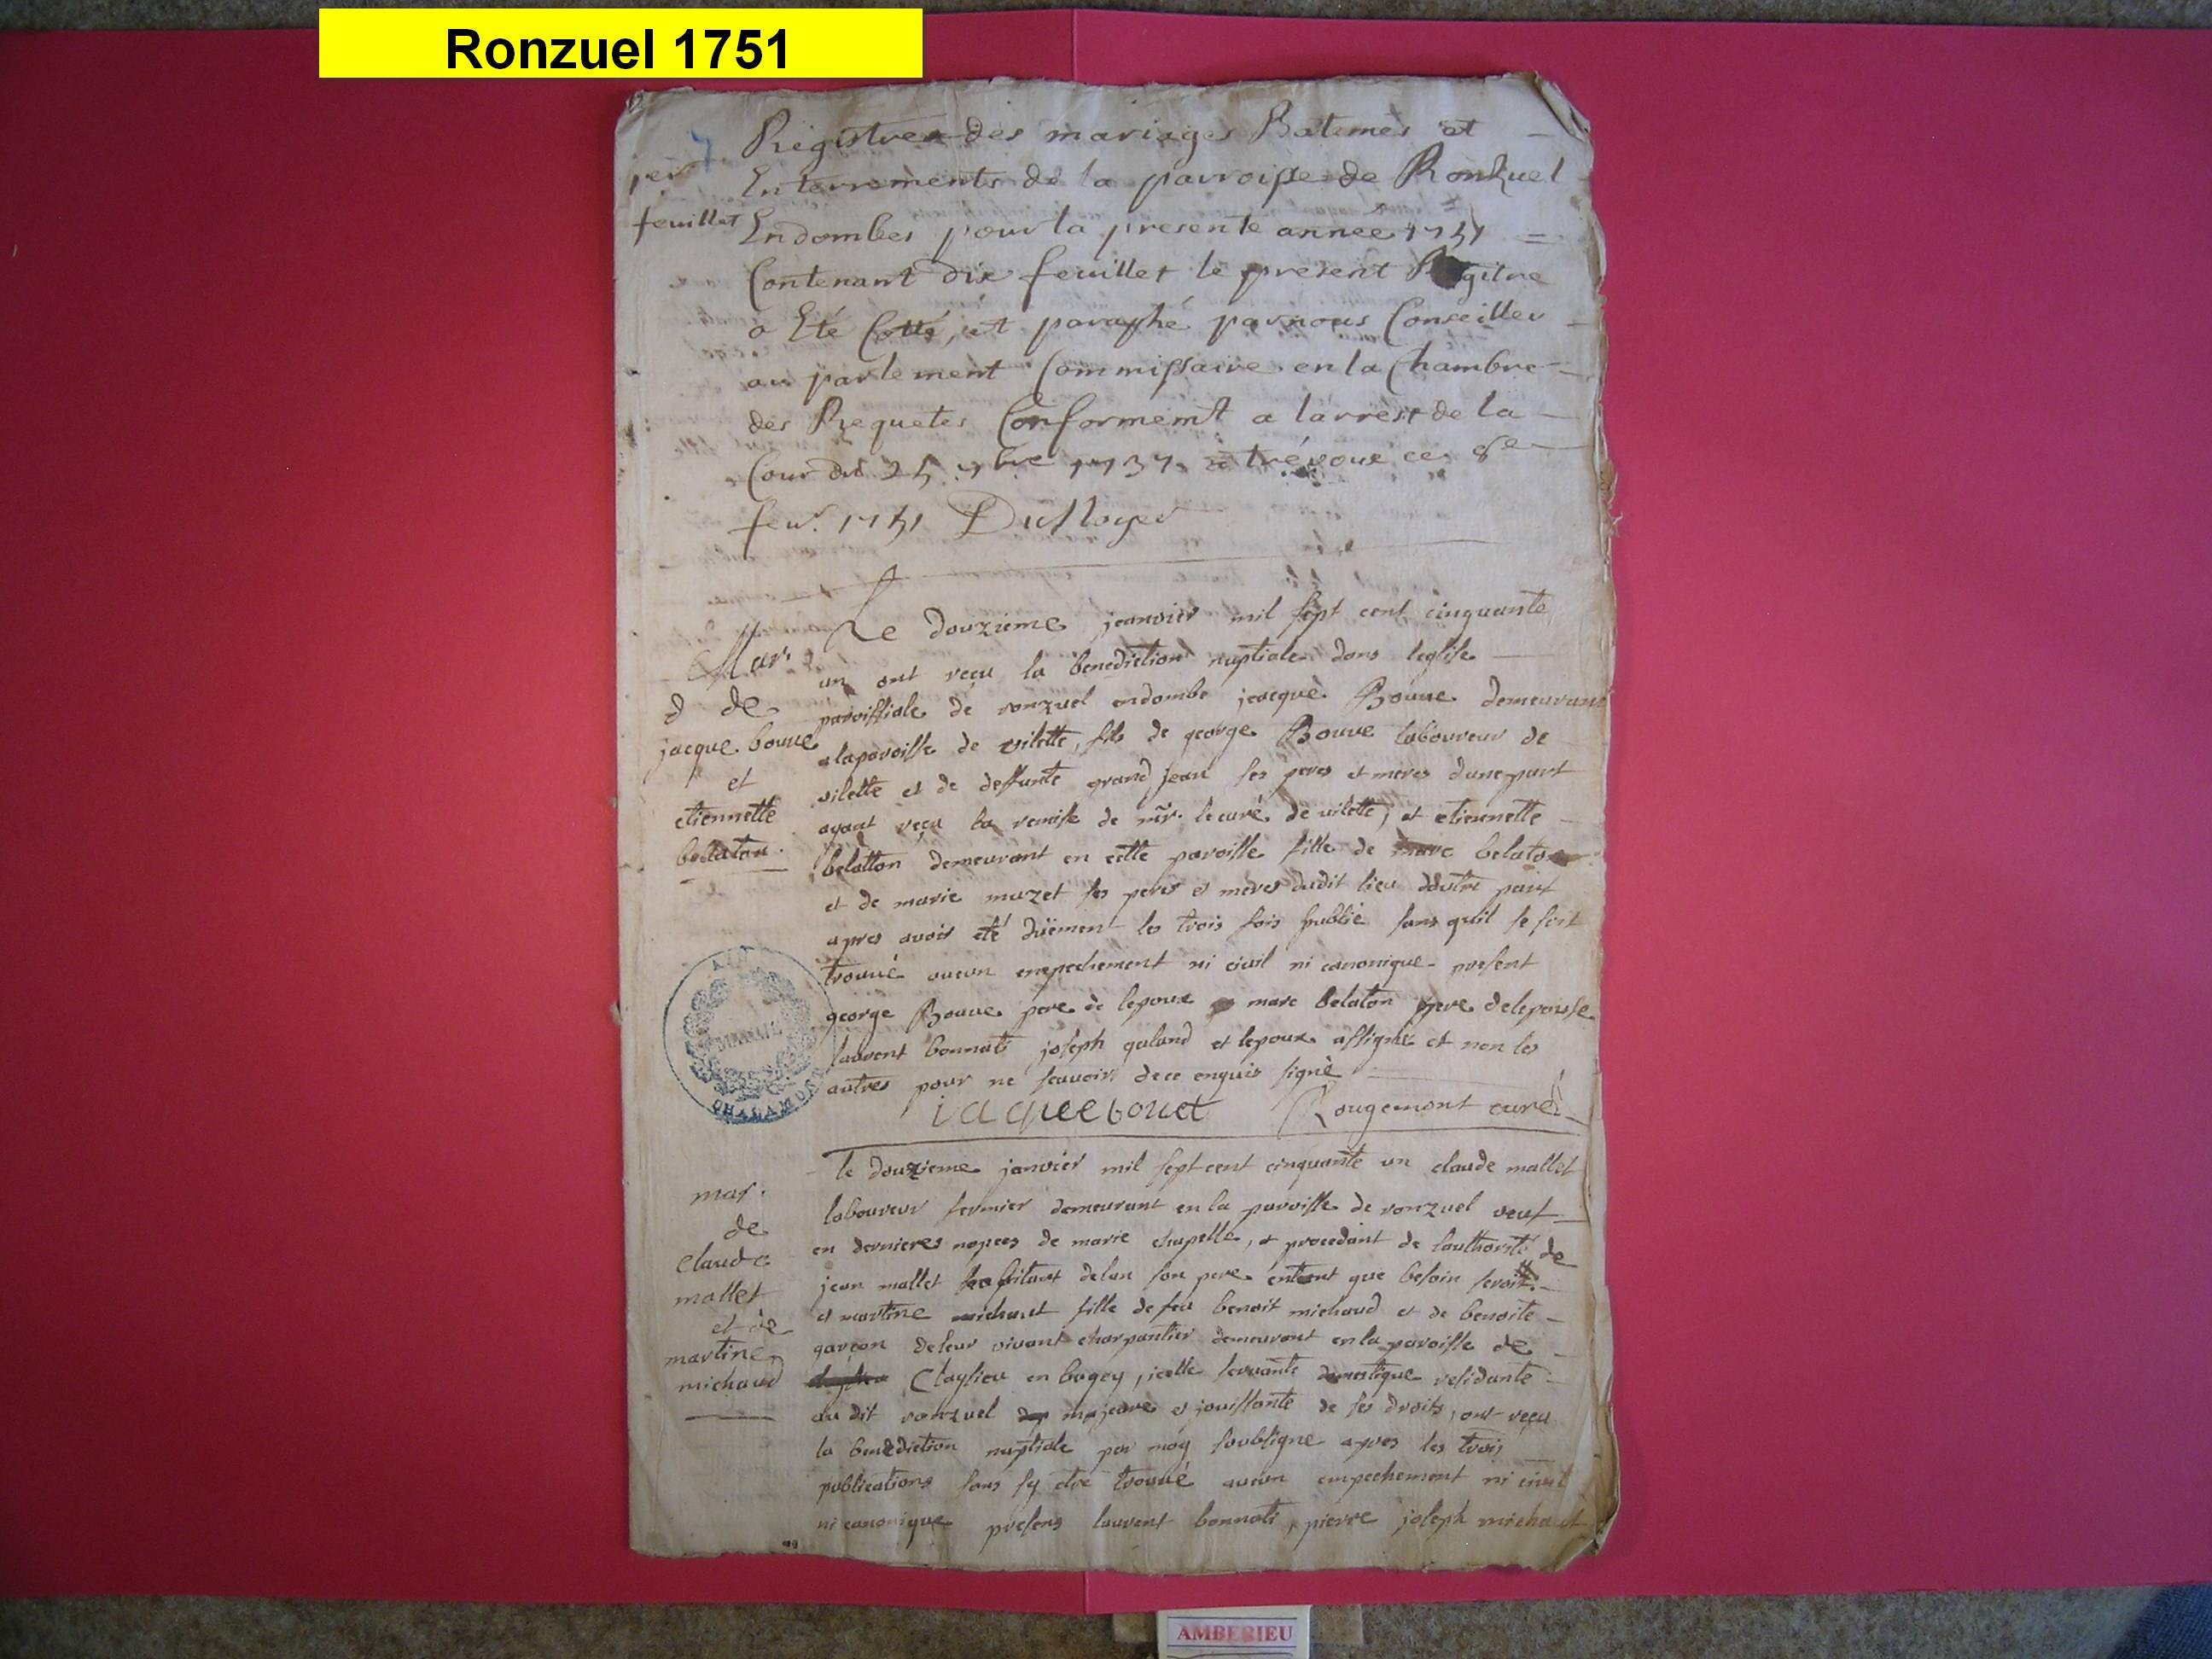 Ronzuel 1751
1er
feuillet
Registres des mariages Batemes et
Enterrements de la parroisse de Ronzuel
En dombes pour la presente année 1751
Contenant dix feuillet le present Registre
a Eté Cotté, et paraphé par nous Conseiller
au parlement Commissaire en la Chambre
des Requetes Conformemt a larrest de la
Cour du 25 7bre 1737 a trévoux ce 8e
fevr. 1751 DuNoyer
Mar.
d de
jacque bouue
et
etiennette
bellaton.
Le douzieme jeanvier mil sept cent cinquante
un ont reçu la benediction nuptiale dans leglise
paroissiale de ronzuel en dombe jeacque Bouue demeurant
a la paroisse de vilette, fils de george Bouue laboureur de
vilette et de deffunte grand jean ses peres et meres dune part
ayant reçu la remise de mr. le curé de vilette, et etiennette
belatton demeurant en cette paroisse fille de marc belaton
et de marie muzet ses peres et meres dudit lieu dautre part
apres avoir eté düement les trois fois publié sans quil se soit
trouué aucun empechement ni ciuil ni canonique present
george Bouue pere de lepoux marc belaton pere de lepouse
laurent bonnati joseph galand et lepoux assigné et non les
autres pour ne scauoir de ce enquis signé
iaquee bouet Rougemont curé
AIN
CHALAMONT
mar.
de
claude
mallet
et de
martine
michaud
le douzieme janvier mil sept cent cinquante un claude mallet
laboureur fermier demeurant en la paroisse de ronzuel veuf
en dernieres nopces de marie chapelle, et procedant de lauthorité de
jean mallet son pere entant que besoin seroit
et martine michaut fille de feu benoit michaud et de benoite
garçon de leur vivant charpantier demeurant en la paroisse de
Claylieu en bugey, icelle servante domestique residante
au dit ronzuel majeure et jouissante de ses droits, ont reçu
la benediction nuptiale par moy soubsigne apres les trois
publications sans sy etre trouué aucun empechement ni ciuil
ni canonique presens laurent bonnati, pierre joseph michaut
AMBERIEU